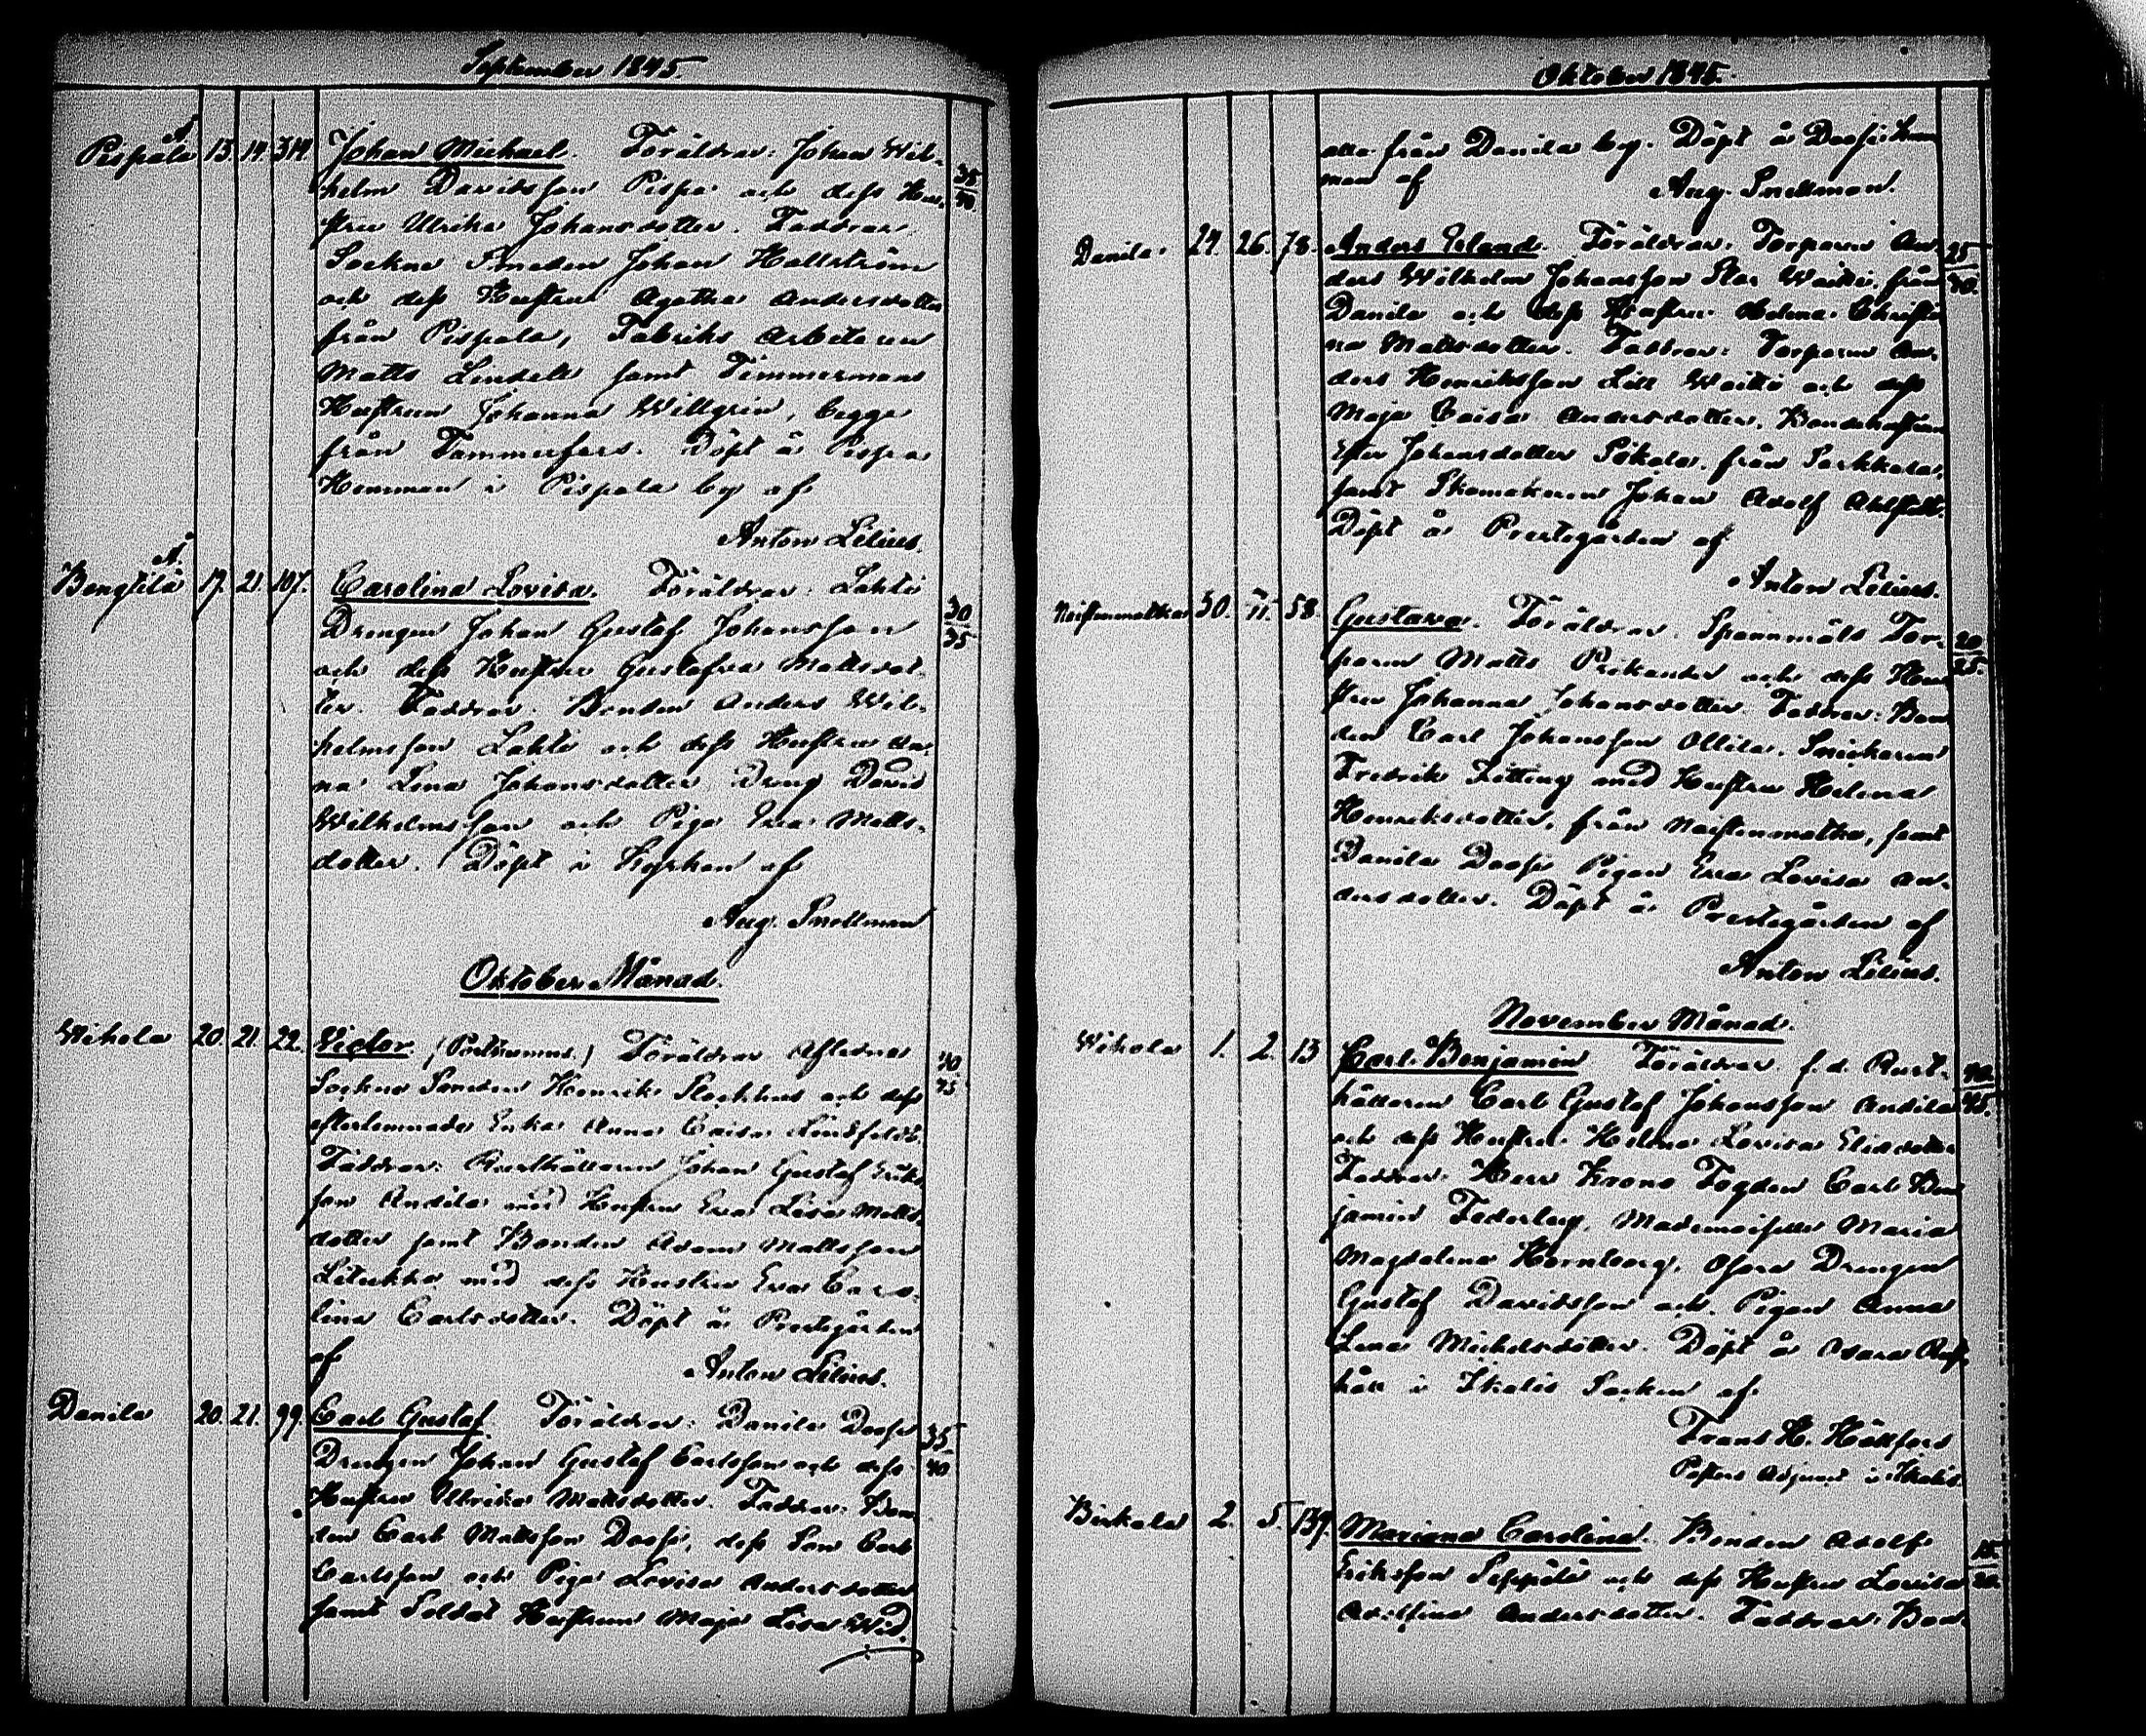 September 1845.
Pispala 13. 14. 314. Johan Michael. Föräldrar: Johan Wil- 35/40.
helm Davidsson Pispa och dess Hu-
stru Ulrika Johansdotter. Faddrar
Sockne Smeden Johan Hallström
och dess Hustru Agatha Andersdotter
från Pispala, Fabriks Arbetaren
Matts Lindell samt Timmermans
Hustrun Johanna Willgrén, begge
från Tammerfors. Döpt å Pispa
Hemman i Pispala by af
Anton Lilius.
Bengtilä 17. 21. 107. Carolina Lovisa. Föräldrar: Lahti 30/35
Drengen Johan Gustaf Johansson
och dess Hustru Gustafva Mattsdot-
ter. Faddrar. Bonden Anders Wil-
helmsson Lahti och dess Hustru An-
na Lena Johansdotter Dreng David
Wilhelmsson och Piga Eva Matts-
dotter. Döpt i Kyrkan af
Aug. Snellman
Oktober Månad.
Wihola 20. 21. 22. Victor. (Posthumus.) Föräldrar Aflidne 40/45
Sockne Smeden Henrik och dess
efterlemnade Enka Anna Caisa Lindfeldt.
Faddrar: Rusthållaren Johan Gustaf Eriks-
son Andila med Hustru Eva Lisa Matts-
dotter samt Bonden Adam Mattsson
Liuckka med dess Hustru Eva Caro-
lina Carlsdotter. Döpt å Prestegården
af Anton Lilius.
Danila 20. 21. 99. Carl Gustaf. Föräldrar: Danila Doose 35/40
Drengen Johan Gustaf Carlsson och dess
Hustru Ulrika Mattsdotter. Faddrar: Bon-
den Carl Mattsson Doose, dess Son Carl
Carlsson och Piga Lovisa Andersdotter
samt Soldat Hustrun Maja Lisa Wid.
Oktober 1845.
alla från Danila by. Döpt å Doose Hem-
man af Aug. Snellman.
Danila 24. 26. 78. Anders Erland. Föräldrar: Torparen An- 25/30.
ders Wilhelm Johansson Stor Waitti från
Danila och dess Hustru Helena Christi-
na Mattsdotter. Faddrar: Torparen An-
ders Henriksson Lill Waitti och dess
Maja Caisa Andersdotter, Bondehustrun
Ester Johansdotter Sökala från Sarkkala,
samt Skomakaren Johan Adolf Ahlstedt.
Döpt å Prestegården af
Anton Lilius.
Naistenmatka 30. 58. Gustava. Föräldrar. Spannmåls Tor- 20/25.
paren Matts och dess Hu-
stru Johanna Johansdotter. Faddrar: Bon-
den Carl Johansson Ollila, Snickaren
Fredrik Zitting med Hustru Helena
Henriksdotter, från Naistenmatka, samt
Danila Doose Pigan Eva Lovisa An-
dersdotter. Döpt å Prestegården af
Anton Lilius.
November Månad.
Wihola 1. 2. 13 Carl Benjamin Föräldrar f. d. Rust- 40/45.
hållaren Carl Gustaf Johansson Andila
och dess Hustru Helena Lovisa Eliedotter
Faddrar. Herr Krono Fogden Carl Ben-
jamin Federley, Mademoiselle Maria
Magdalena Hornborg, Osara Drengen
Gustaf Davidsson och Pigan Anna
Lena Michelsdotter. Döpt å Osara Rust-
håll i Ikalis Socken af
Frans H. Hällfors
Pastors Adjunct i Ikalis.
Birkala 2. 5. 139. Mariana Carolina. Bonden Adolf
Eriksson Seppälä och dess Hustru Lovisa
Adolfina Andersdotter. Faddrar: Bon-